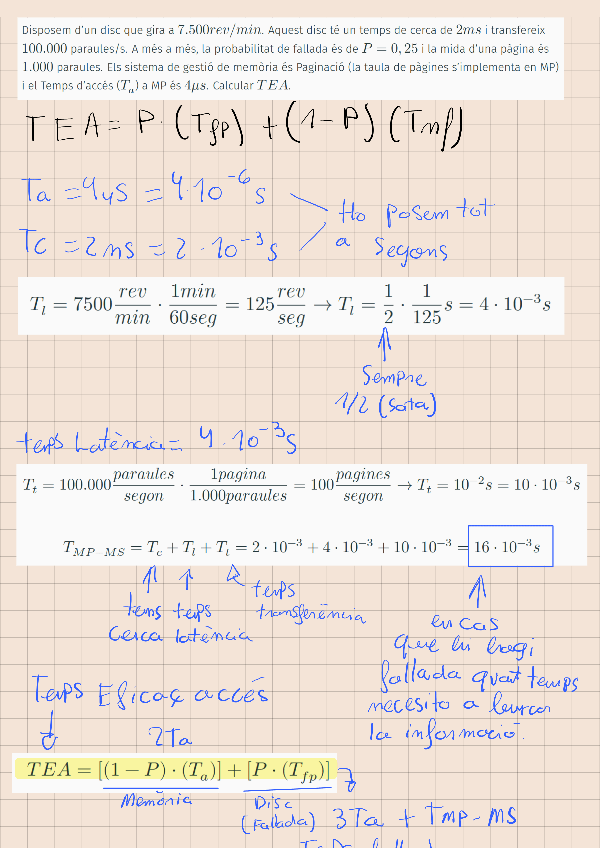 Disposem d'un disc que gira a 7.500rev/min. Aquest disc té un temps de cerca de 2ms i transfereix
100.000 paraules/s. A més a més, la probabilitat de fallada és de P = 0, 25 i la mida d'una pàgina és
1.000 paraules. Els sistema de gestió de memòria és Paginació (la taula de pàgines s'implementa en MP)
i el Temps d'accès (T_a) a MP és 4μs. Calcular TEA.
TEA = P · (Tfp) + (1-P) (Tnf)
Ta = 4μs = 4·10^-6 s
Ho posem tot
Tc = 2ms = 2 · 10^-3 s
a segons
T_l = 7500 rev/min · 1min/60seg = 125 rev/seg → T_l = 1/2 · 1/125 s = 4 · 10^-3 s
Sempre
1/2 (Sata)
temps Latència = 4.10^-3 s
T_t = 100.000 paraules/segon · 1pagina/1.000paraules = 100 pagines/segon → T_t = 10^-2 s = 10 · 10^-3 s
T_MP-MS = T_c + T_l + T_l = 2 · 10^-3 + 4 · 10^-3 + 10 · 10^-3 = 16 · 10^-3 s
temps temps
cerca latència
temps
transferència
en cas
que hi hagi
fallada quant temps
necesito a buscar
la informació.
Temps Eficaç accés
2Ta
TEA = [(1 − P) · (T_a)] + [P · (T_fp)]
Memòria
Disc
(Fallada) 3Ta + TMP-MS